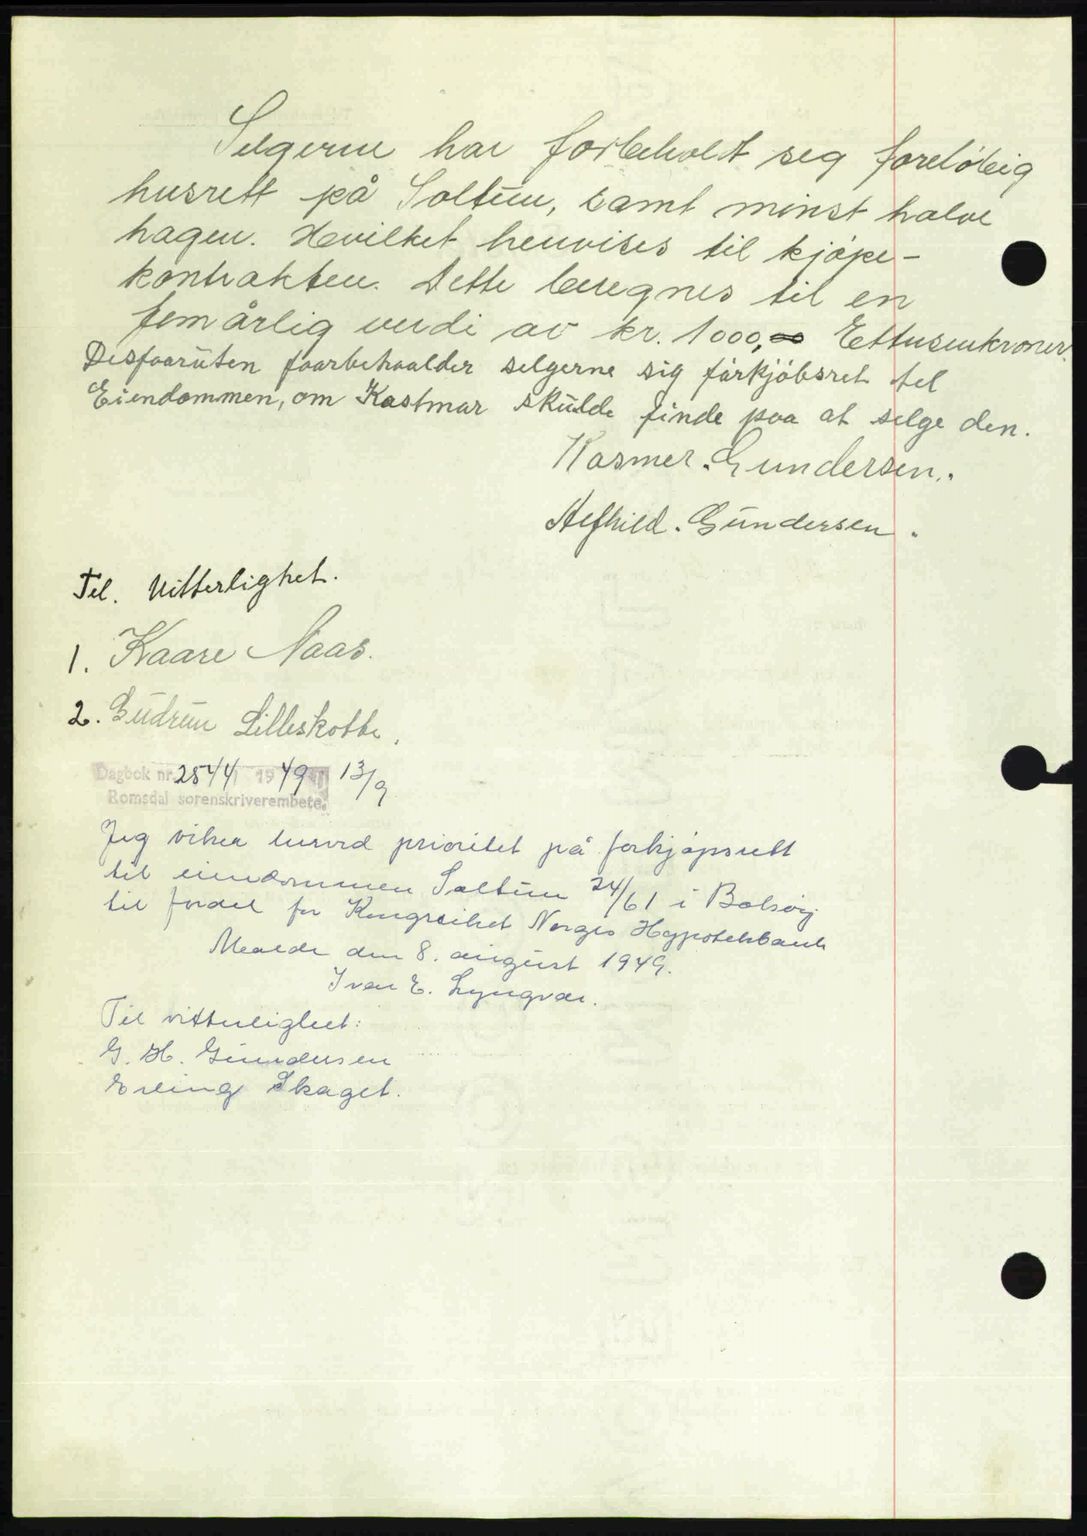 Selgerne har forbeholdt seg foreløbig
husrett på Soltun, samt minst halve
hagen. Hvilket henvises til kjøpe-
kontrakten. Dette beregnes til en
femårlig verdi av kr. 1000,00 Ettusenkroner.
Desforuten foorbehoolder selgerne sig førkjøbsret tel
Eiendommen, om Kastmar skulde finde poa at selge den.
Kasmer. Gundersen.
Gundersen.
Til. Vitterlighet.
1. Kaare Naas.
2. Gudrun Lilleskotte.
Dagbok nr. 2544 1949 13/9
Romsdal sorenskriverembete.
Jeg viker herved prioritet på forkjøpsrett
til eiendommen Soltun 24/61 i Bolsøy
til fordel for Kongeriket Norges Hypotekbank
Molde den 8. august 1949.
Ivar E. Lyngvær.
Til vitterlighet:
G. H. Gundersen
Erling Skaget.